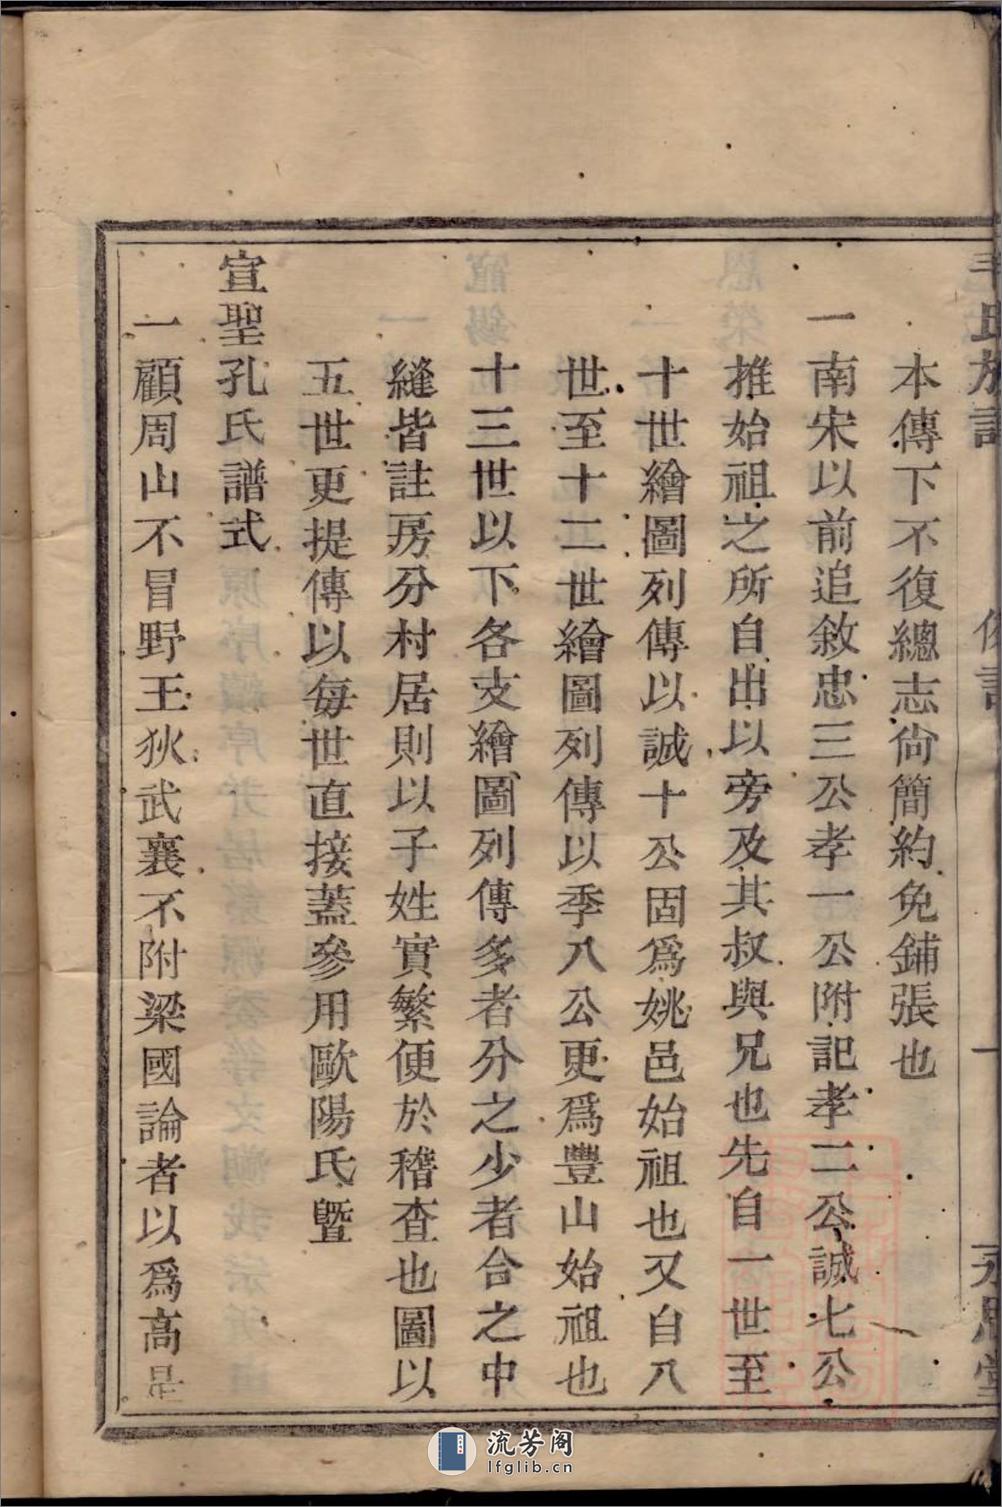 本傳下不復總志尙簡約免鋪張也
一南宋以前追敘忠三公孝一公附記孝二公誠七公
推始祖之所自出以旁及其叔與兄也先自一世至
十世繪圖列傳以誠十公固爲姚邑始祖也又自八
世至十二世繪圖列傳以季八公更爲豐山始祖也
十三世以下各支繪圖列傳多者分之少者合之中
縫皆註房分村居則以子姓實繁便於稽查也圖以
五世更提傳以每世直接蓋參用歐陽氏暨
宣聖孔氏譜式
一顧周山不冒野王狄武襄不附梁國論者以爲高是
流芳阁
lfglib.cn